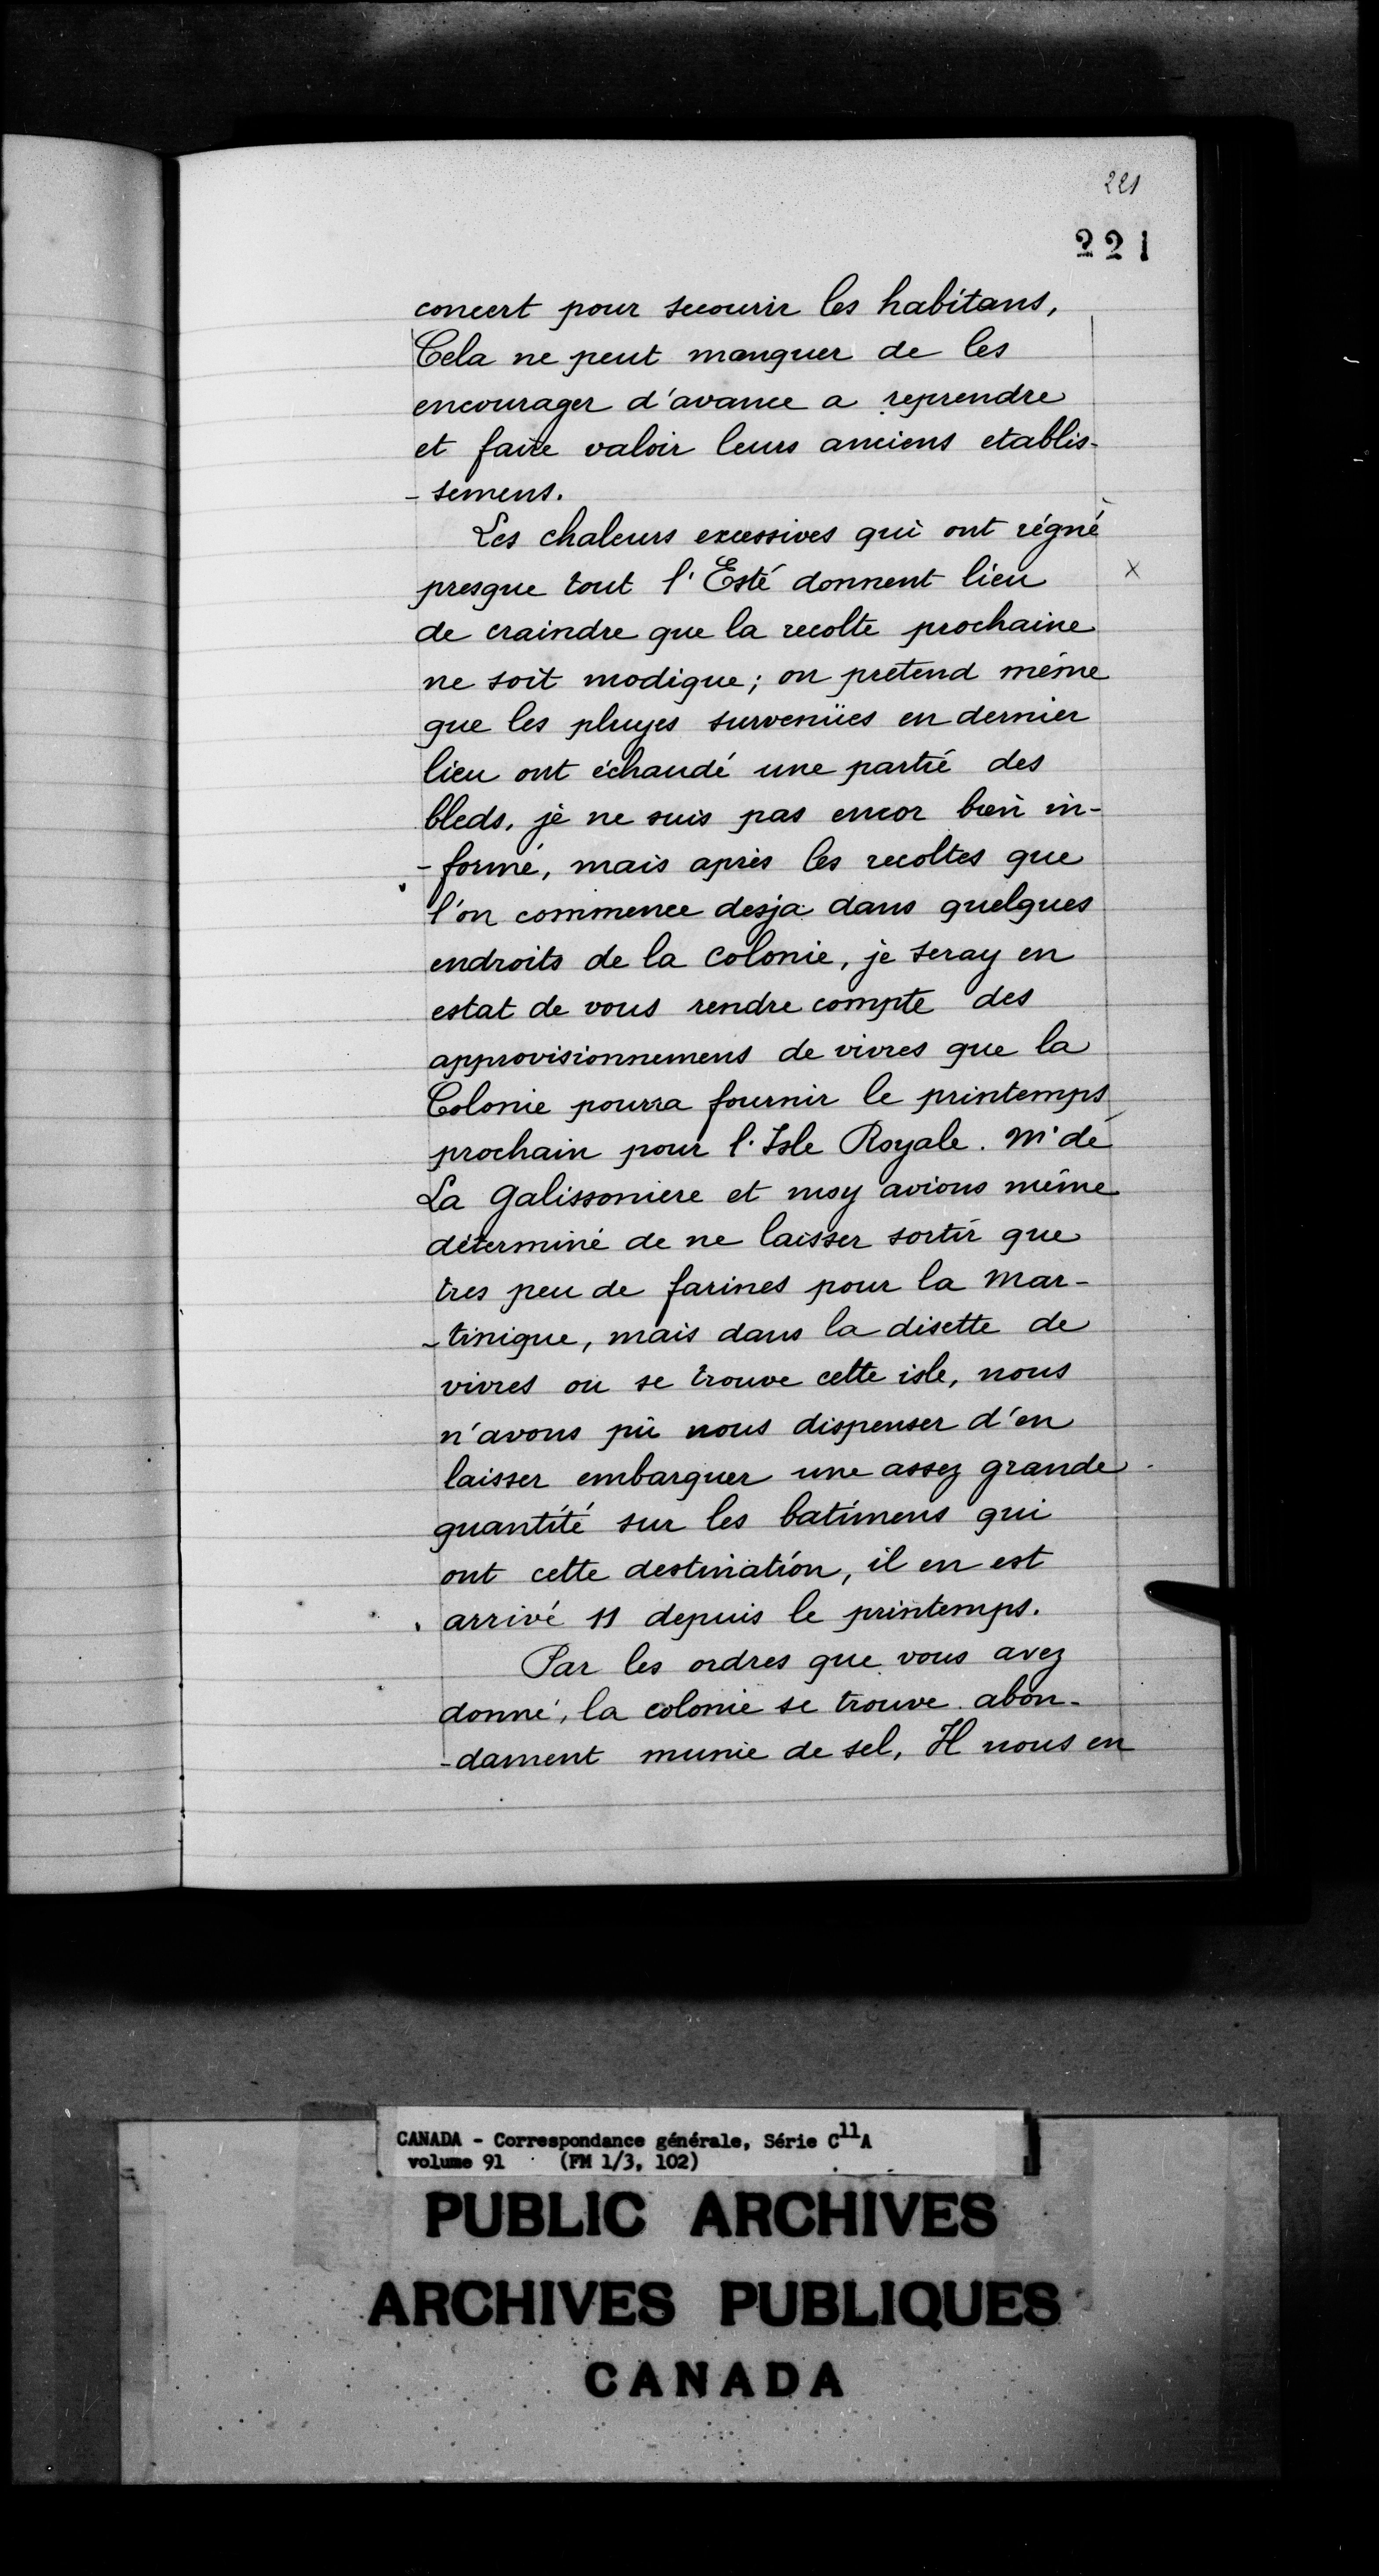 221
221
concert pour secourir les habitans,
Cela ne peut manquer de les
encourager d'avance a reprendre
et faire valoir leurs anciens etablis-
-semens.
Les chaleurs excessives qui ont régné
presque tout l'Esté donnent lieu
x
de craindre que la recolte prochaine
ne soit modique; on pretend même
que les pluyes survenües en dernier
lieu ont échaudé une partie des
bleds, je ne suis pas encor bien in-
-formé, mais après les recoltes que
l'on commence desja dans quelques
endroits de la Colonie, je seray en
estat de vous rendre compte des
approvisionnemens de vivres que la
Colonie pourra fournir le printemps
prochain pour l'Isle Royale. Mr de
La Galissoniere et moy avions même
déterminé de ne laisser sortir que
tres peu de farines pour la Mar-
-tinique, mais dans la disette de
vivres ou se trouve cette isle, nous
n'avons pû nous dispenser d'en
laisser embarquer une assez grande
quantité sur les batimens qui
ont cette destination, il en est
arrivé 11 depuis le printemps.
Par les ordres que vous avez
donné, la colonie se trouve abon-
-dament munie de sel, Il nous en
CANADA - Correspondance générale, Série C11A
volume 91 (FM 1/3, 102)
PUBLIC ARCHIVES
ARCHIVES PUBLIQUES
CANADA